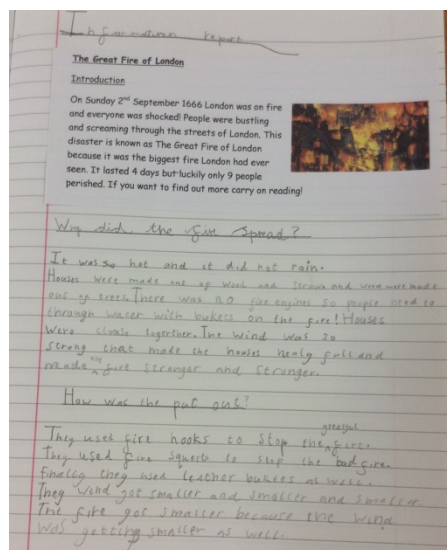 Information report
The Great Fire of London
Introduction
On Sunday 2nd September 1666 London was on fire
and everyone was shocked! People were bustling
and screaming through the streets of London. This
disaster is known as The Great Fire of London
because it was the biggest fire London had ever
seen. It lasted 4 days but luckily only 9 people
perished. If you want to find out more carry on reading!
Why did the fire Spread?
It was so hot and it did not rain.
Houses were made out of wood and Straw and were made
out of There was no fire engines so people need to
through water with bukets on the fire! Houses
were close together. The wind was so
strong that made the houses nealy fall and
made the fire stronger and stronger.
How was the put out?
They used fire hooks to stop the greatful fire.
They used fire squerts to stop the bad fire.
finally they used leather bukets as well.
They wind got smaller and smaller and smaller.
The fire got smaller because the wind
was getting smaller as well.